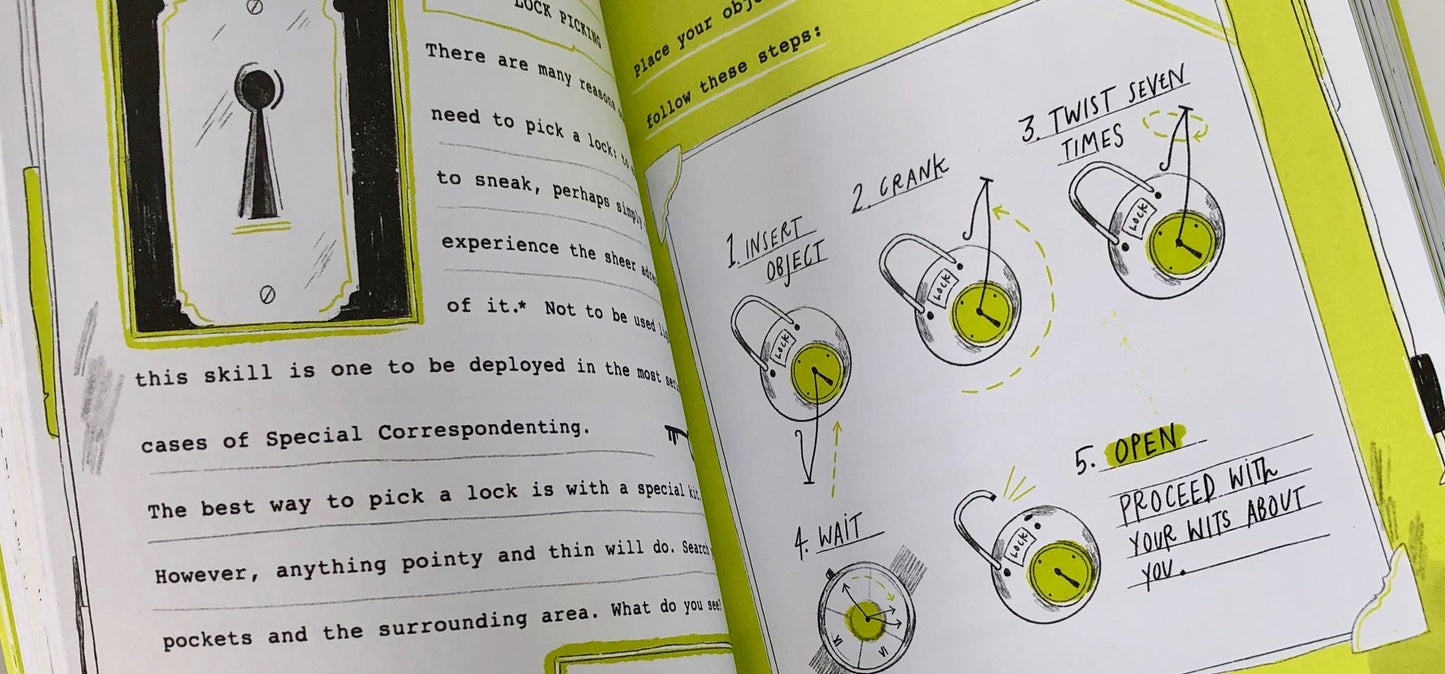 LOCK PICKING
There are many reasons
need to pick a lock:
to sneak, perhaps simply
experience the sheer
of it.* Not to be used
this skill is one to be deployed in the most
cases of Special Correspondenting.
The best way to pick a lock is with a special kit.
However, anything pointy and thin will do. Search
pockets and the surrounding area. What do you see?
Place your
follow these steps:
1. INSERT
OBJECT
LOCK
2. CRANK
LOCK
3. TWIST SEVEN
TIMES
LOCK
4. WAIT
VI
5. OPEN
PROCEED WITH
YOUR WITS ABOUT
YOU.
LOCK